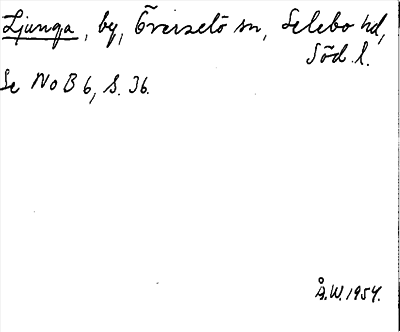 Ljunga, by, Överselö sn, Selebo hd,
Söd. l.
Se NoB 6, S. 36.
Å.W. 1954.